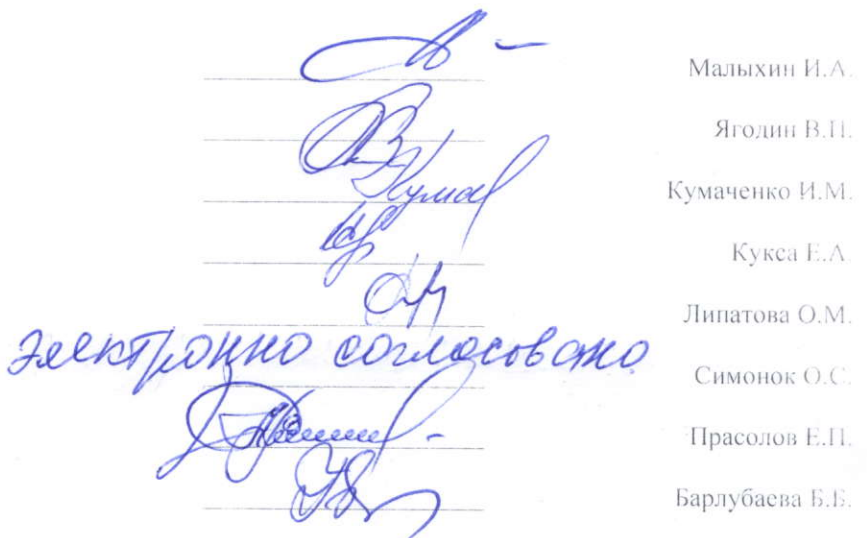 Малыхин И.А.
Ягодин В.П.
Кумаченко И.М.
Кукса Е.А.
Липатова О.М.
электронно согласовано Симонок О.С.
Прасолов Е.П.
Барлубаева Б.Б.